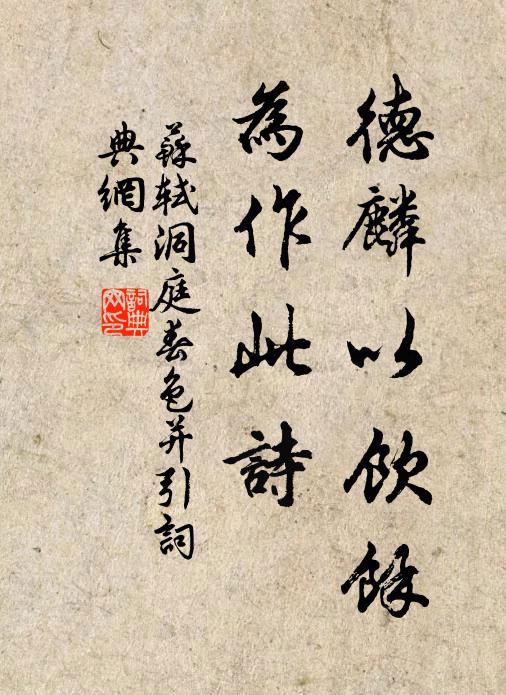 德麟以飲餘
為作此詩
蘇軾洞庭春色并引詞
典網集
詞典
网印